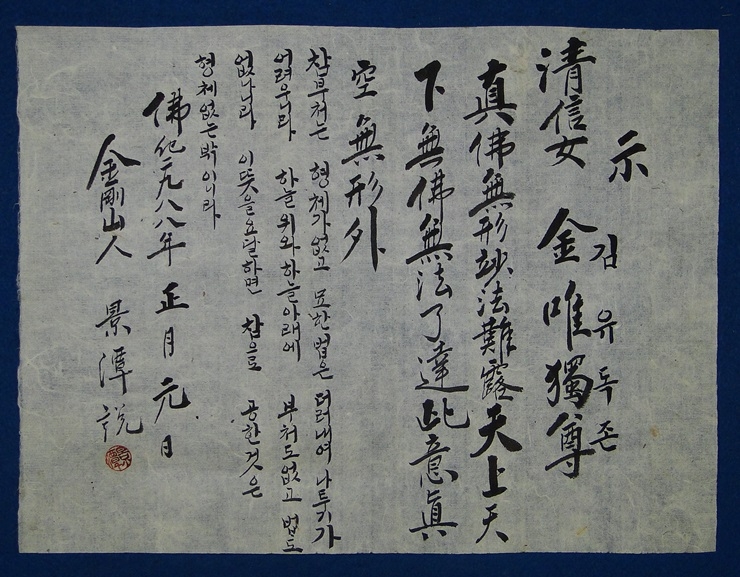 示
清信女 金唯獨尊
김유독존
真佛無形妙法難露天上天
下無佛無法了達此意眞
空無形外
참부처는 형체가없고 묘한법은 더러내여 나투기가
어려우니라 하늘위와하늘아래에 부처도없고 법도
없나니라 이뜻을요달하면 참으로 공한것은
형체없는밖이니라
佛紀二九八八年 正月 元日
金剛山人 景潭說